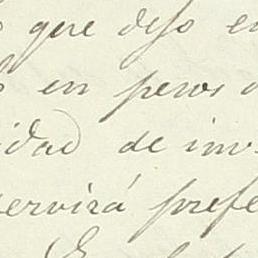 que dejo en
en pesos
idad de inv
servirá prefe